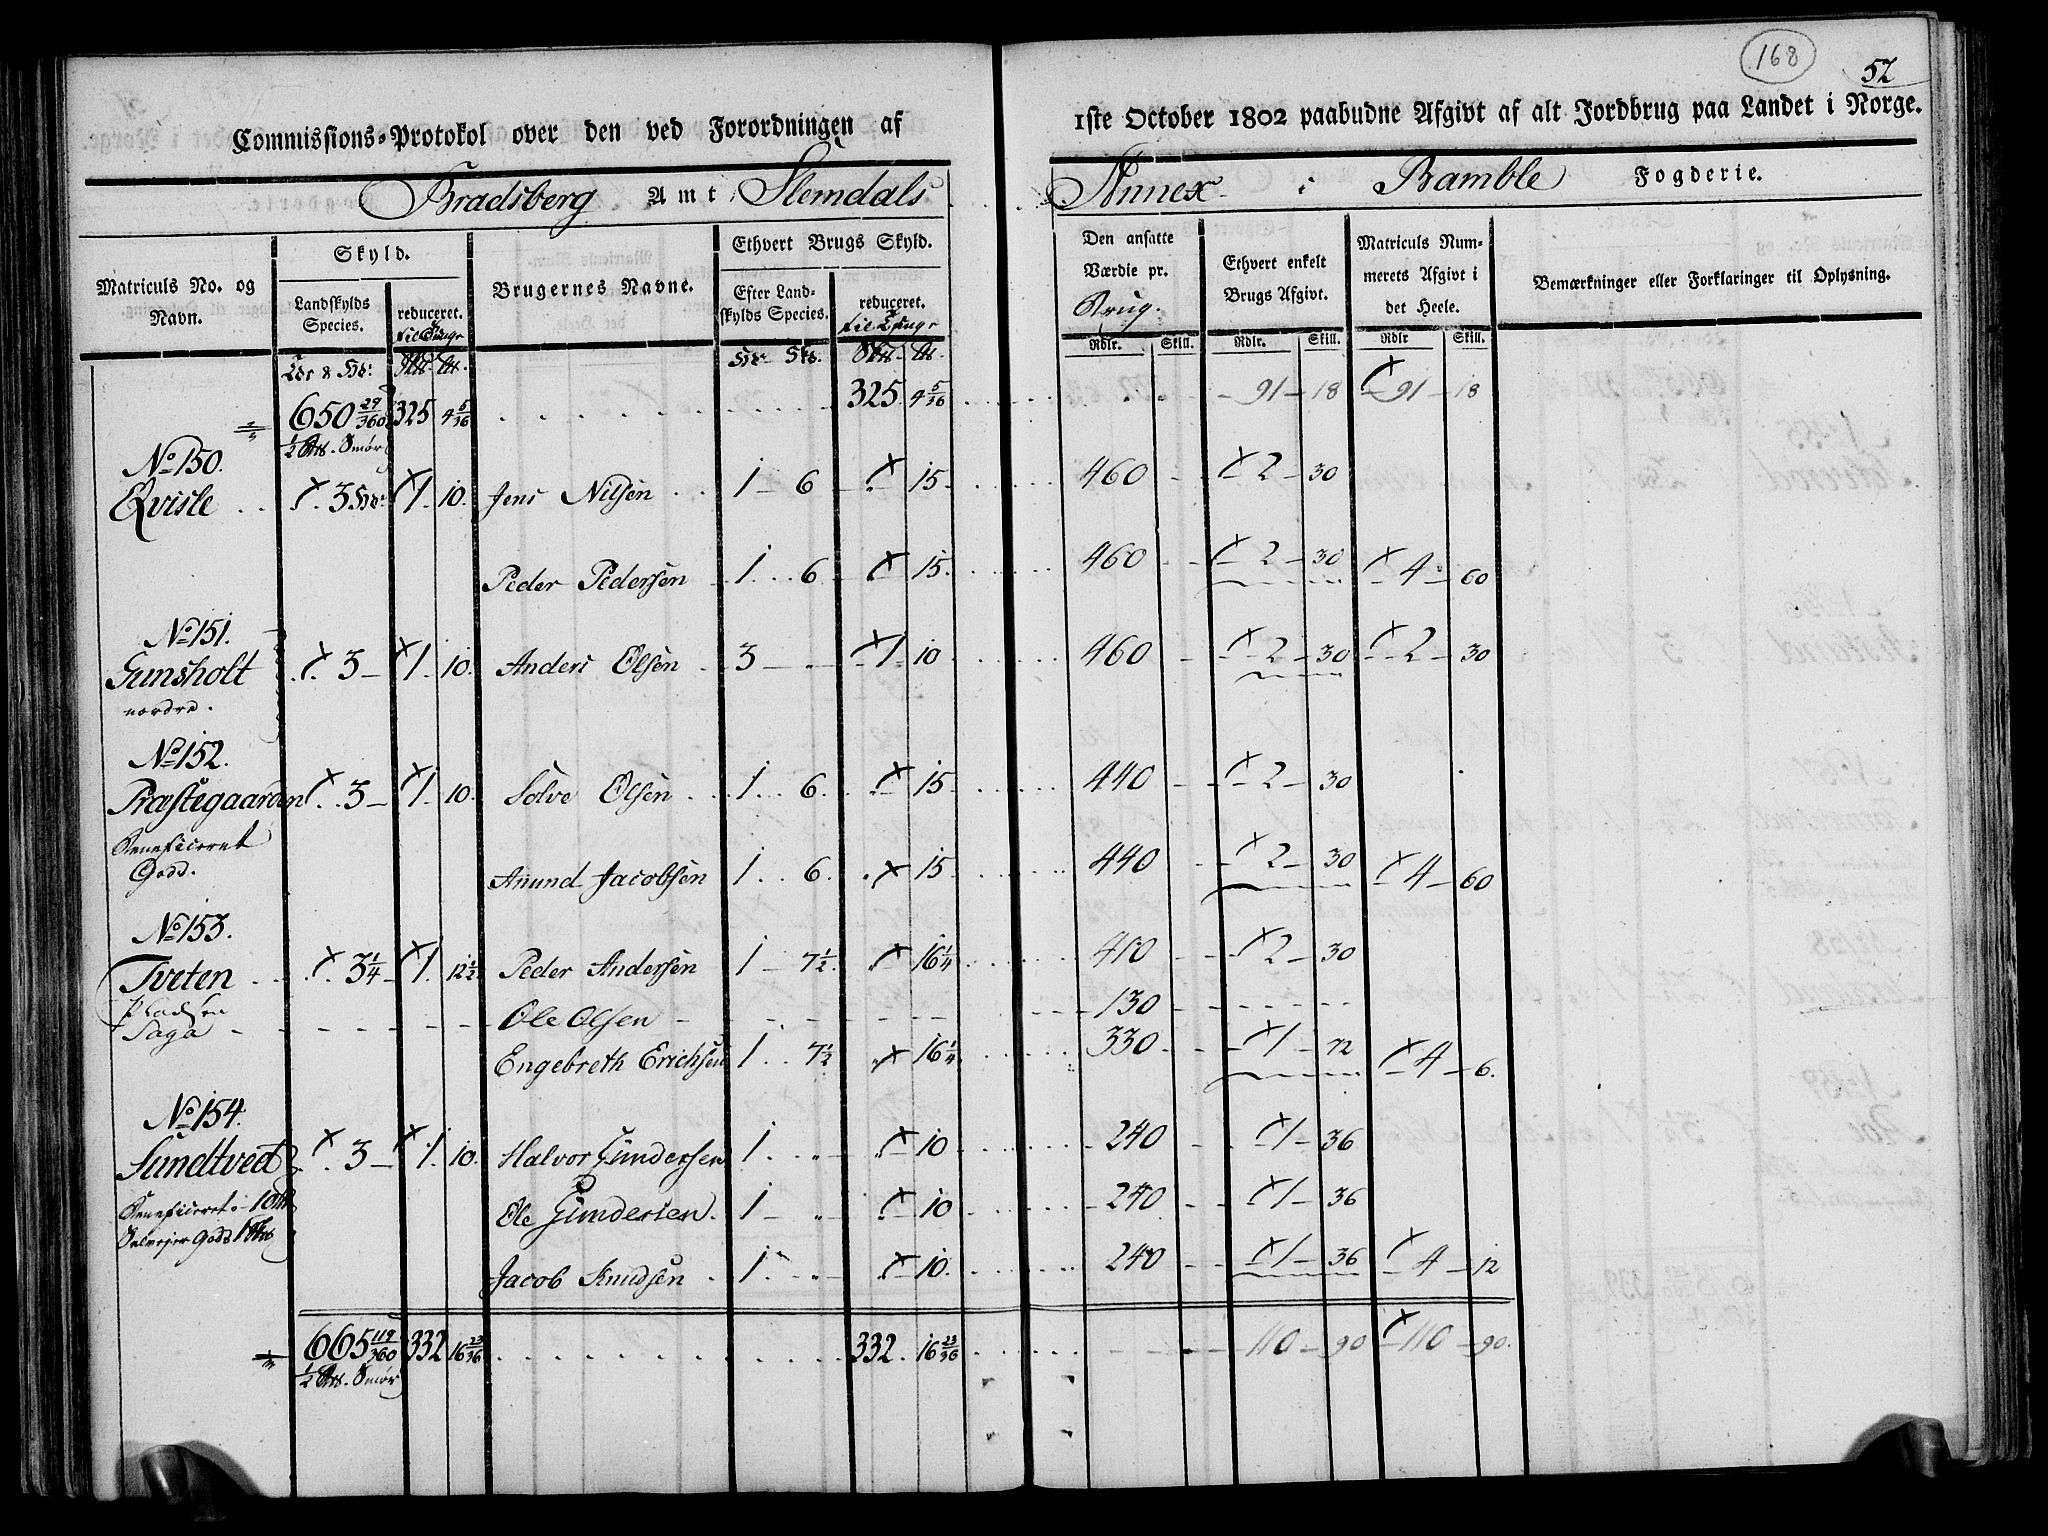 168
52
Commissions=Protokol over den ved Forordningen af 1ste October 1802 paabudne Afgivt af alt Jordbrug paa Landet i Norge.
Bradsberg Amt Slemdals Annex i Bamble Fogderie.
Matriculs No. og Navn.
Skyld.
Landskylds Species.
reduceret.
Brugernes Navne.
Ethvert Brugs Skyld.
Efter Land-skylds Species.
reduceret.
Den ansatte Værdie pr. Brug.
Ethvert enkelt Brugs Afgivt.
Matriculs Num-merets Afgivt i det Heele.
Bemærkninger eller Forklaringer til Oplysning.
Rdlr. Skill. Rdlr. Skill. Rdlr Skill.
650 29/360 325 4 5/36 325 4 5/36 91 18 91 18
½ Smør
No 150.
Qvisle 3 1 10. Jens Nilsen 1 6 15 460 2 30
Peder Pedersen 1 6 15. 460 2 30 4 60
No 151.
Gunsholt 3 1 10. Anders Olsen 3 1 10 460 2 30 2 30
nordre.
No 152.
Præstegaarden 3 1 10. Solve Olsen 1 6. 15 440 2 30
Beneficeret Gods.
Anund Jacobsen 1 6. 15 440 2 30 4 60
No 153.
Tveten 3¼ 1 12½ Peder Andersen 1 7½ 16¼ 410 2 30
Pladsen
Saga Ole Olsen 130
Engebreth Erichsen 1 7½ 16¼ 330 1 72 4 6.
No 154.
Sundtved 3 1 10. Halvor Gundersen 1 10 240 1 36
Beneficeret 10
Ole Gundersen 1 10 240 1 36
Gods 1
Jacob Knudsen 1 10. 240 1 36 4 12
665 119/360 332 16 23/36 332. 16 23/36 110 90 110 90.
½ Smør